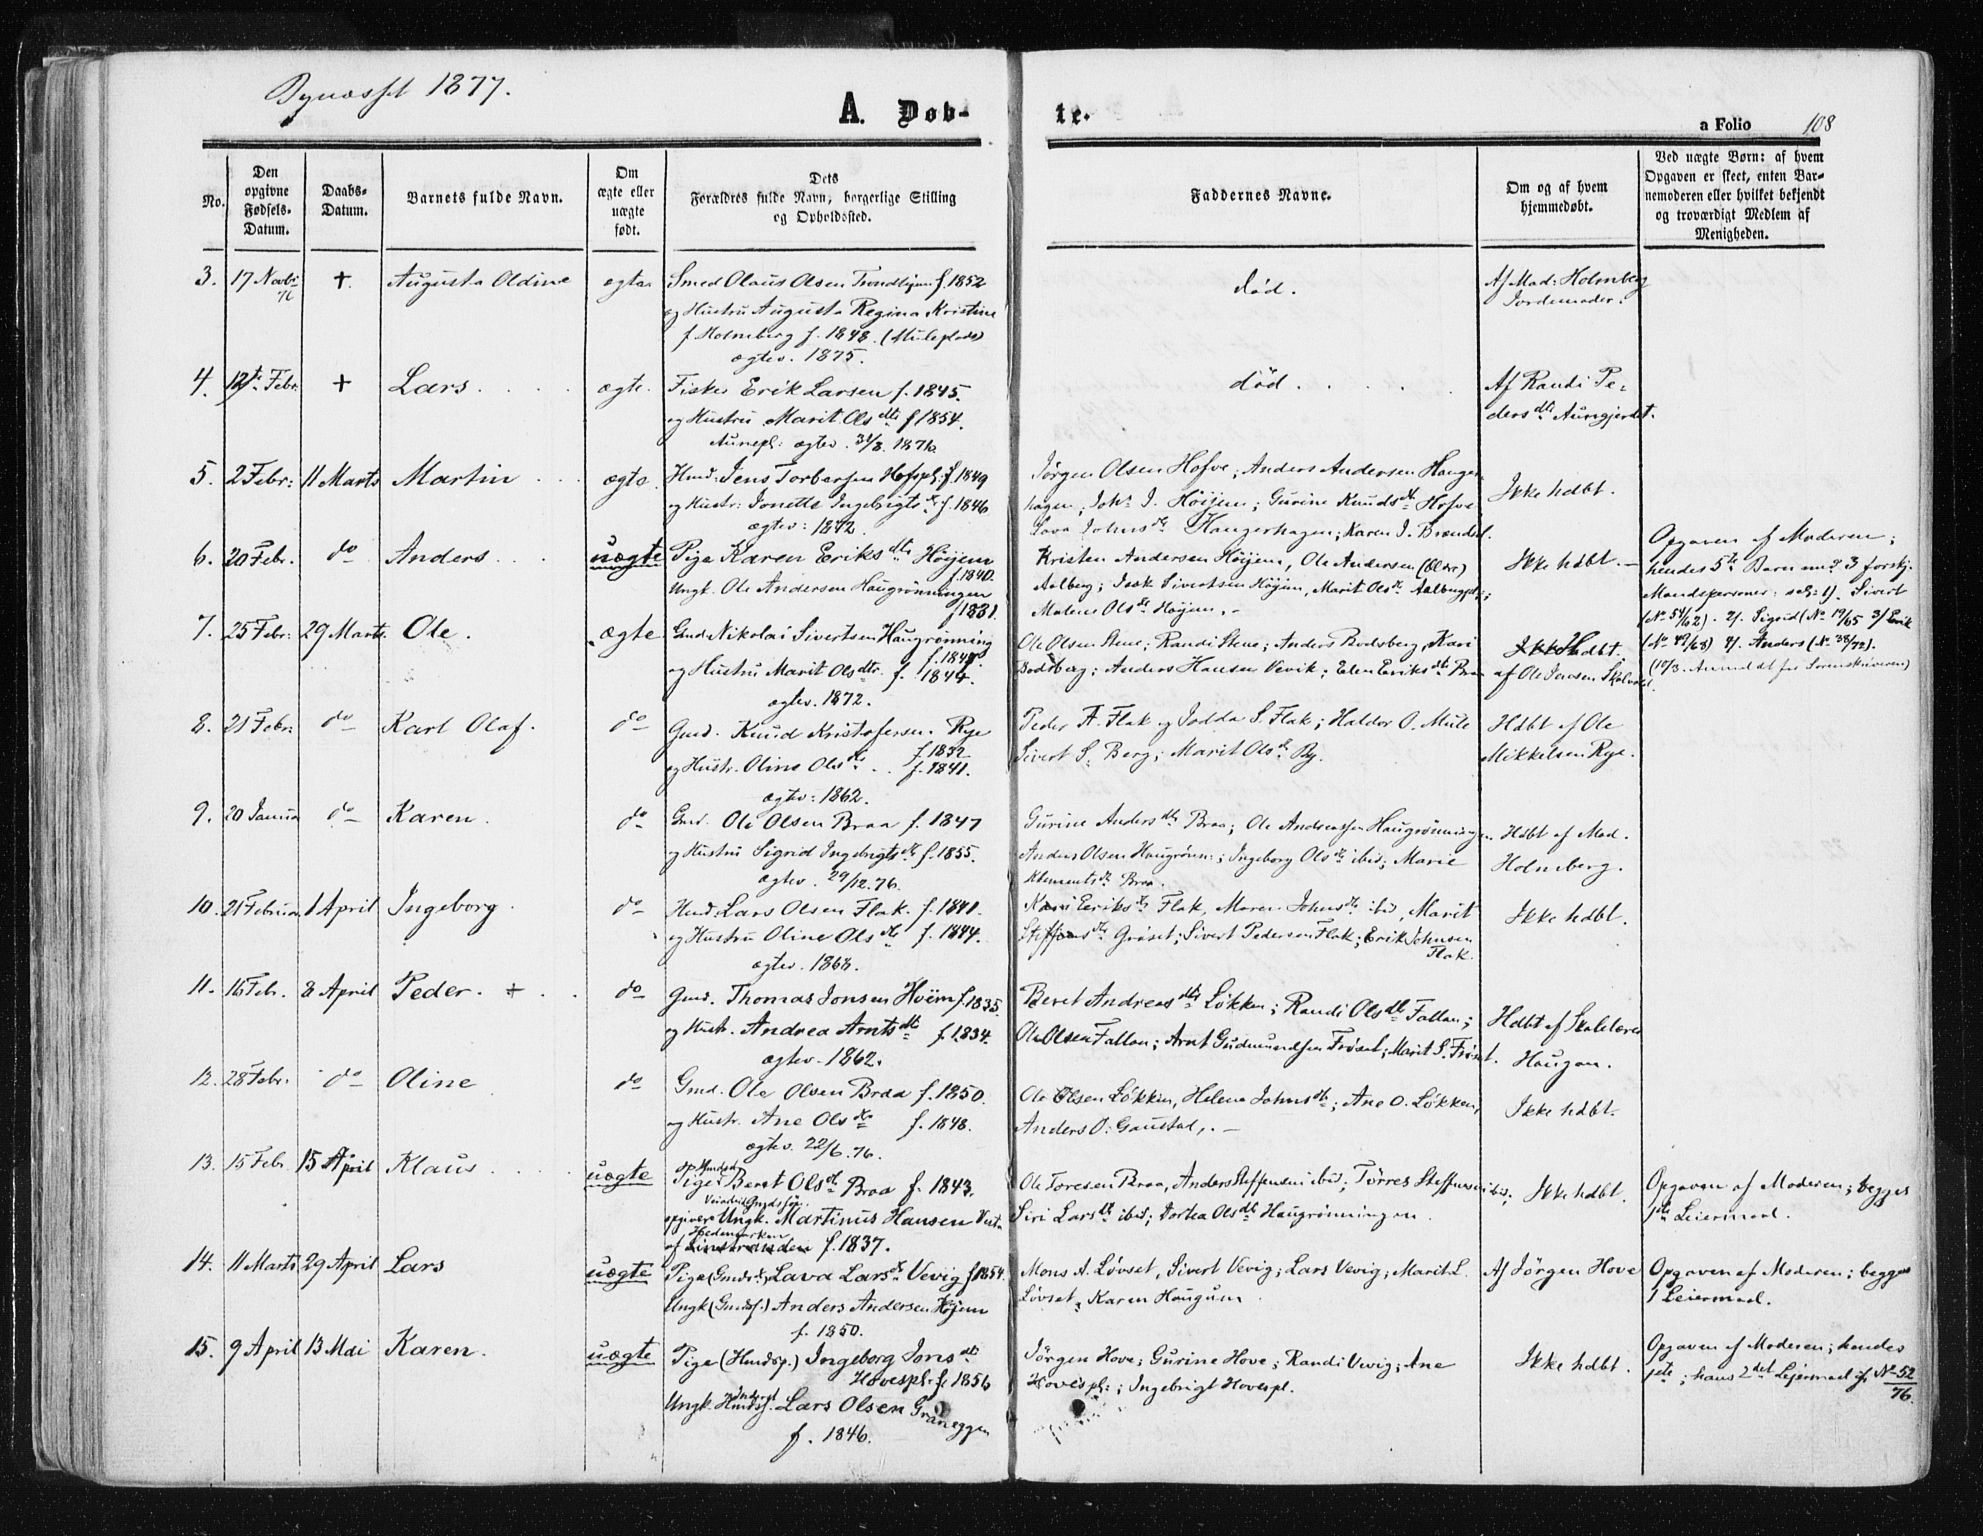 Bynæsset 1877.
A. Døb-
te.
a Folio 108
No.
Den opgivne Fødsels-Datum.
Daabs-Datum.
Barnets fulde Navn.
Om ægte eller uægte født.
Dets Forældres fulde Navn, borgerlige Stilling og Opholdssted.
Faddernes Navne.
Om og af hvem hjemmedøbt.
Ved uægte Børn: af hvem Opgaven er skeet, enten Barnemoderen eller hvilket bekjendt og troværdigt Medlem af Menigheden.
3. 17 Novbr 76 + Augusta Oldine ægte Smed Olaus Olsen Trondhjem f. 1852
og Hustru Augusta Regina Kristine
f. Holmberg f. 1848. (Muleplads)
ægtev. 1875.
død.
Af Mad: Holmberg
Jordemoder.
4. 12te Febr. + Lars ægte. Fisker Erik Larsen f. 1845.
og Hustru Marit Olsdtr f 1854.
Aunepl: ægtev. 31/3. 1876.
død
Af Randi Pe-
dersdtr Aungjerdet.
5. 2 Febr: 11 Marts Martin ægte. Husmd: Jens Torbersen Hofspl: f. 1849
og Hustr: Jonette Ingebrigtsdr f. 1846
ægtev: 1872.
Jørgen Olsen Hofve; Anders Andersen Hanger-
hagen; Johs J. Höijem; Gurine Knudsdtr Hofve
Lava Johnsdtr Hangerhagen; Karen J. Brendsl.
Ikke hdbt.
6. 20 Febr. do Anders uægte Pige Karen Eriksdtr Höijem
f. 1840.
Ungk. Ole Andersen Haugrønningen
f 1831.
Kristen Andersen Höijem, Ole Andersen (Older)
Aalberg; Isak Sivertsen Höyem, Marit Olsdr Aalbergpl:;
Malene Olsdtr Höyem.
Ikke hdbt.
Opgaven af Moderen;
hendes 5te Barn med 3 forskj.
Mandspersoner: 1). Sivert
(No 54/62). 2). Sigrid (No 19/65 3) Erik
(No 49/68) 4). Anders (No 38/72).
7. 25 Febr: 29 Marts Ole. ægte Gmd Nikolai Sivertsen Haugrønning
og Hustru Marit Olsdtr. f. 1844.
ægtev. 1872.
Ole Olsen Stene; Randi Stene; Anders Bodsberg, Kari
Bodsberg; Anders Hansen Vevik; Elen Eriksdtr Braa
Ikke Hdbt.
af Ole Jensen
8. 21 Febr: do Karl Olaf. do Gmd. Knud Kristofersen Rye
f 1832
og Hustr. Oline Olsdr f. 1841.
ægtev: 1862.
Peder A. Flak og Jodda S. Flak; Haldor O. Mule
Sivert S. Berg; Marit Olsdr By.
Hdbt af Ole
Mikkelsen Rye.
9. 20 Januar do Karen. do Gmd. Ole Olsen Braa f. 1847
og Hustru Sigrid Ingebrigtsdr f. 1855.
ægtev. 29/12.76.
Gurine Andersdtr Braa; Ole Andreassen Haugrønningen
Anders Olsen Haugrønn:; Ingeborg Olsdtr ibid; Marie
Klementsdr Braa.
Hdbt af Mad.
Holmberg.
10. 21 Februar 1 April Ingeborg. do Husmd: Lars Olsen Flak. f. 1841.
og Hustru Oline Olsdtr f. 1844.
ægtev. 1868.
Kari Eriksdr Flak, Maren Johnsdtr ibid, Marit
Steffensdr Grøset; Sivert Pedersen Flak; Erik Johnsen
Flak.
Ikke hdbt.
11. 16 Febr. 8 April Peder. + do Gmd. Thomas Jonsen Höem f. 1835.
og Hustr. Andrea Arntsdtr f. 1834.
ægtev. 1862.
Beret Andreasdtr Løkken; Randi Olsdtr Fallan;
Ole Olsen Fallan; Arnt Gudmundsen Frøset; Marit S. Frøset.
Hdbt af Skolelærer
Haugan.
12. 28 Febr. do Oline do Gmd. Ole Olsen Braa f. 1850.
og Hustr. Ane Olsdtr f. 1848.
ægtev. 22/6.76.
Ole Olsen Løkken, Helene Johnsdtr; Ane O. Løkken,
Anders O. Gaustad,.
Ikke hdbt.
13. 15 Febr. 15 April Klaus uægte Pige Beret Olsdr Braa f. 1843.
opgiver Ungk. Martinus Hansen
Hedemarken
f. 1837.
Ole Toresen Braa, Anders Steffensen ibid; Tørres Steffensen ibid;
Siri Larsdtr ibid; Dortea Olsdtr Haugrønningen.
Ikke hdbt.
Opgaven af Moderen; begges
1ste Leiermaal.
14. 11 Marts 29 April Lars uægte Pige (Gmdsdr) Lava Larsdr Vevig f 1854.
Ungk (Gmdsf.) Anders Andersen Höjem
f. 1850.
Mons A. Løvset, Sivert Vevig; Lars Vevig; Marit L.
Løvset, Karen Haugum.
Af Jørgen Hove
Opgaven af Moderen; begges
1 Leiermaal.
15. 9 April 13 Mai Karen. uægte Pige (Husmdsp.) Ingeborg Jonsdtr
Hovespl. f. 1856
Ungk. Inderst Husmdsf. Lars Olsen Graneggen
f. 1846.
Jørgen Hove; Gurine Hove; Randi Vevig; Ane
Hovespl:; Ingebrigt Hovespl.
Ikke hdbt.
Opgaven af Moderen; hendes
1ste; hans 2det Lejermaal jf. No 52/76.